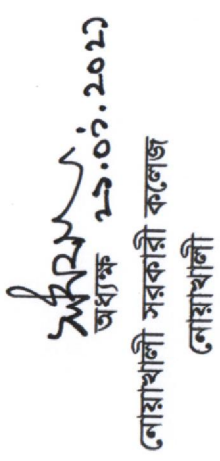 অধ্যক্ষ ২১.০১.২০২১
নোয়াখালী সরকারী কলেজ
নোয়াখালী